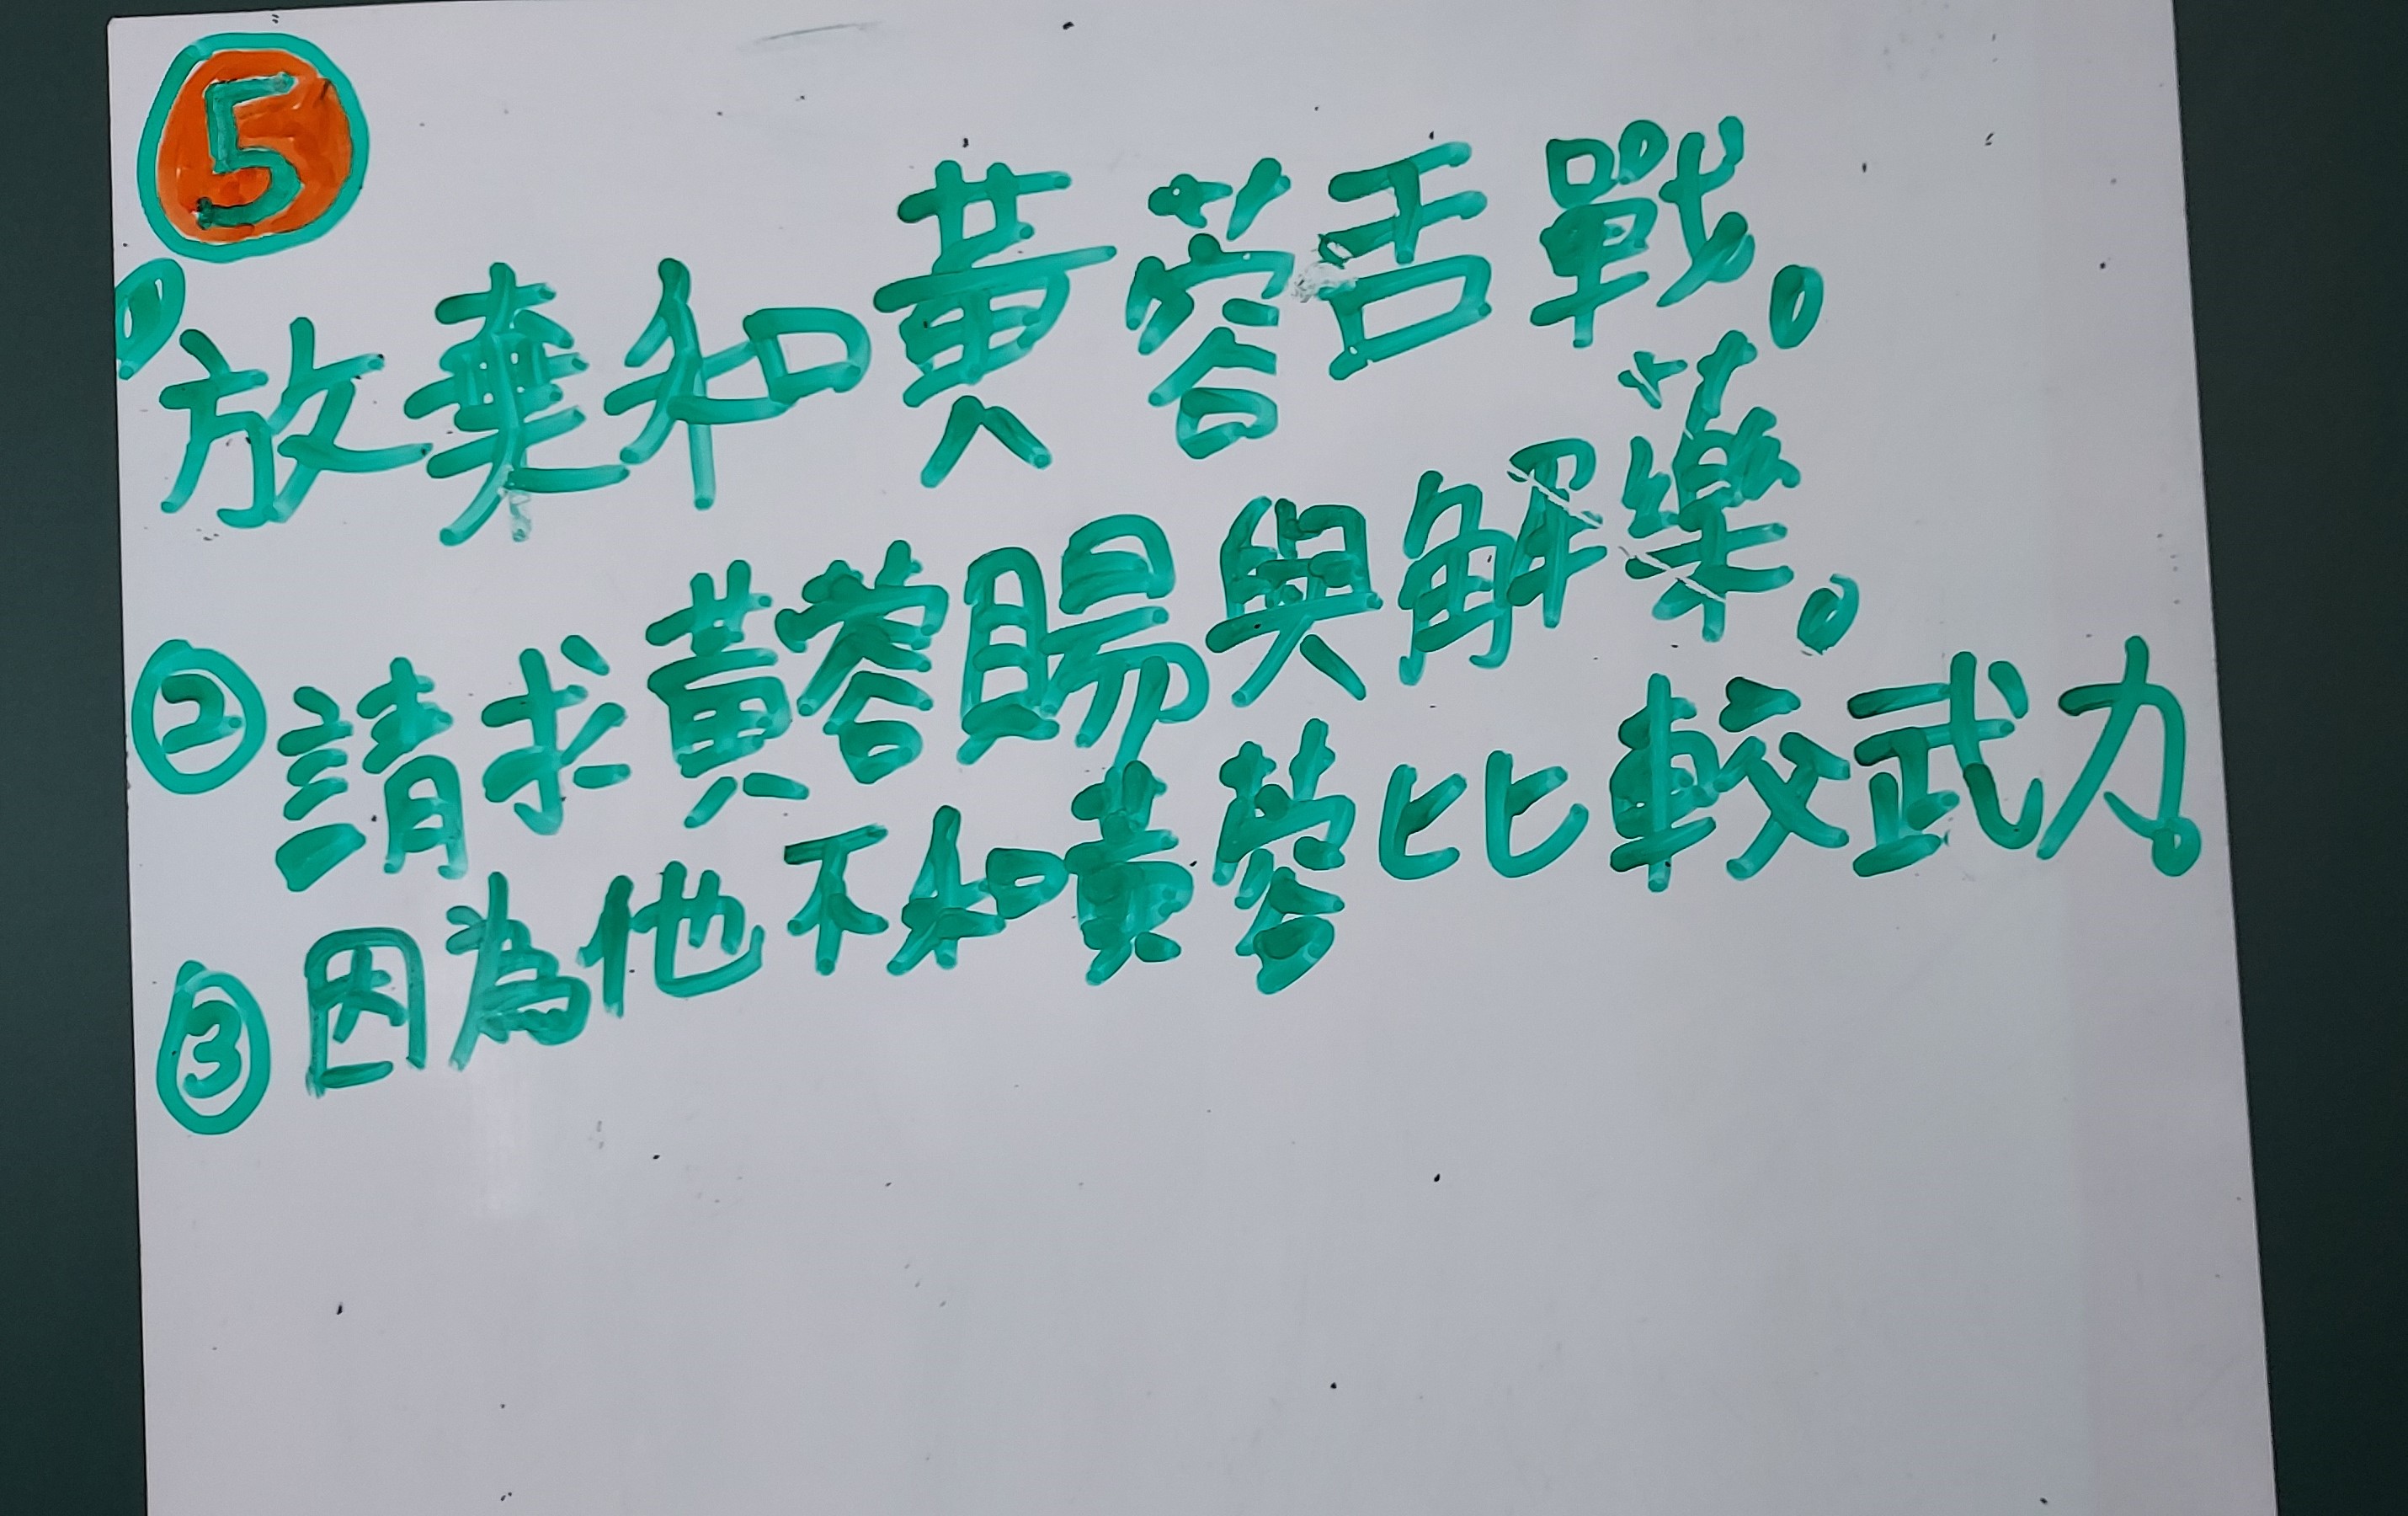 5
①放棄和黃蓉舌戰。
②請求黃蓉賜與解藥。
③因為他不和黃蓉比較武力。